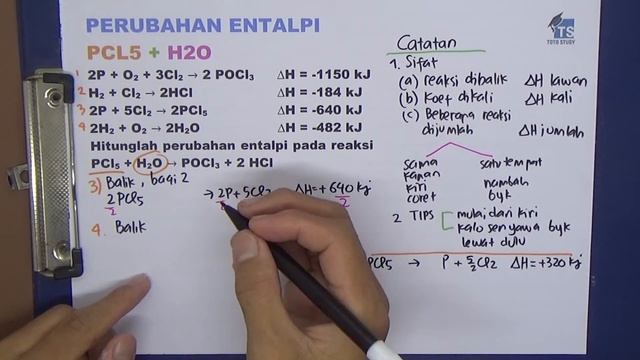 PERUBAHAN ENTALPI
PCL5 + H2O
TS
TOTO STUDY
1 2P + O₂ + 3Cl₂ → 2 POCl₃ ΔH = -1150 kJ
2 H₂ + Cl₂ → 2HCl ΔH = -184 kJ
3 2P + 5Cl₂ → 2PCl₅ ΔH = -640 kJ
4 2H₂ + O₂ → 2H₂O ΔH = -482 kJ
Hitunglah perubahan entalpi pada reaksi
PCl₅ + H₂O → POCl₃ + 2 HCl
3) Balik, bagi 2
2PCl₅ → 2P + 5Cl₂ ΔH = +640 kj
2 2
4. Balik
Catatan
1. Sifat
(a) reaksi dibalik ΔH lawan
(b) Koef dikali ΔH kali
(c) Beberapa reaksi
dijumlah ΔH jumlah
sama satu tempat
kanan nambah
kiri byk
coret
2 TIPS mulai dari kiri
kalo senyawa byk
lewat dulu
PCl₅ → P + 5/2 Cl₂ ΔH = +320 kj